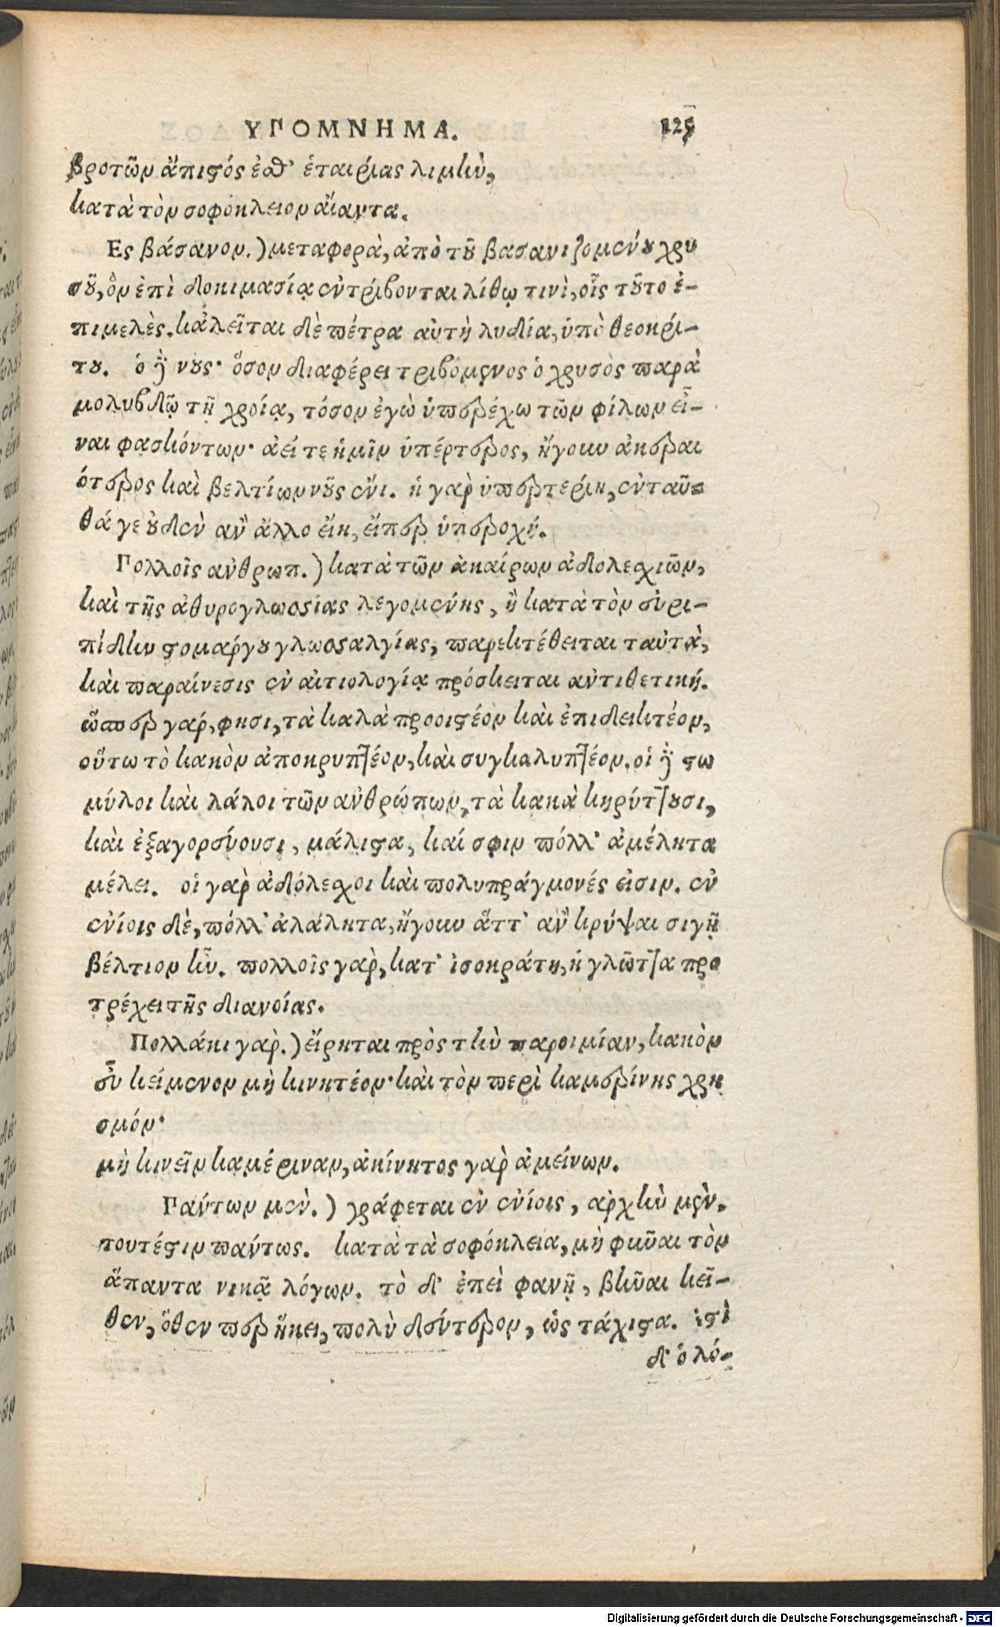 ΥΠΟΜΝΗΜΑ. 125
βροτῶν ἄπιστός ἐσθ' ἑταιρίας λιμὴν,
κατὰ τὸν σοφόκλειον αἴαντα.
Ες βάσανον.) μεταφορὰ, ἀπὸ τοῦ βασανιζομένου χρυ
σοῦ, ὃν ἐπὶ δοκιμασίᾳ ἐντρίβονται λίθῳ τινὶ, οἷς τοῦτο ἐ-
πιμελὲς. καλεῖται δὲ πέτρα αὐτὴ λυδία, ὑπὸ θεοκρί-
του. ὁ δὲ νοῦς· ὅσον διαφέρει τριβόμενος ὁ χρυσὸς παρὰ
μολυβδῷ τῇ χροίᾳ, τόσον ἐγὼ ὑπερέχω τῶν φίλων εἶ-
ναι φασκόντων· ἀεί τε ἡμῖν ὑπέρτερος, ἤγουν ἀκεραι
ότερος καὶ βελτίων νοῦς ἔνι. ἡ γὰρ ὑπερτερίη, ἐνταῦ-
θά γε οὐδὲν ἂν ἄλλο εἴη, εἴπερ ὑπεροχή.
Πολλοῖς ἀνθρωπ.) κατὰ τῶν ἀκαίρων ἀδολεσχιῶν,
καὶ τῆς ἀθυρογλωσσίας λεγομένης, ἢ κατὰ τὸν εὐρι-
πίδην στομάργου γλωσσαλγίας, παρεκτέθειται ταῦτὰ,
καὶ παραίνεσις ἐν αἰτιολογίᾳ πρόσκειται ἀντιθετική.
ὥσπερ γάρ, φησι, τὰ καλὰ προοιστέον καὶ ἐπιδεικτέον,
οὕτω τὸ κακὸν ἀποκρυπτέον, καὶ συγκαλυπτέον. οἱ δὲ στω
μύλοι καὶ λάλοι τῶν ἀνθρώπων, τὰ κακὰ κηρύττουσι,
καὶ ἐξαγορεύουσι, μάλιστα, καί σφιν πόλλ' ἀμέλητα
μέλει. οἱ γὰρ ἀδόλεσχοι καὶ πολυπράγμονές εἰσιν. ἐν
ἐνίοις δὲ, πόλλ' ἀλάλητα, ἤγουν ἅττ' ἂν κρύψαι σιγῇ
βέλτιον ἦν. πολλοῖς γὰρ, κατ' ἰσοκράτη, ἡ γλῶττα προ
τρέχει τῆς διανοίας.
Πολλάκι γαρ.) εἴρηται πρὸς τὴν παροιμίαν, κακὸν
εὖ κείμενον μὴ κινητέον· καὶ τὸν περὶ καμερίνης χρη
σμόν·
μὴ κινεῖν καμέριναν, ἀκίνητος γὰρ ἀμείνων.
Πάντων μὲν.) γράφεται ἐν ἐνίοις, ἀρχὴν μὲν.
τουτέστιν πάντως. κατὰ τὰ σοφόκλεια, μὴ φυῦαι τὸν
ἅπαντα νικᾷ λόγον. τὸ δ' ἐπεὶ φανῇ, βῆναι κεῖ-
θεν, ὅθεν περ ἥκει, πολὺ δεύτερον, ὡς τάχιστα. ἔστι
δ' ὁ λό-
Digitalisierung gefördert durch die Deutsche Forschungsgemeinschaft - DFG